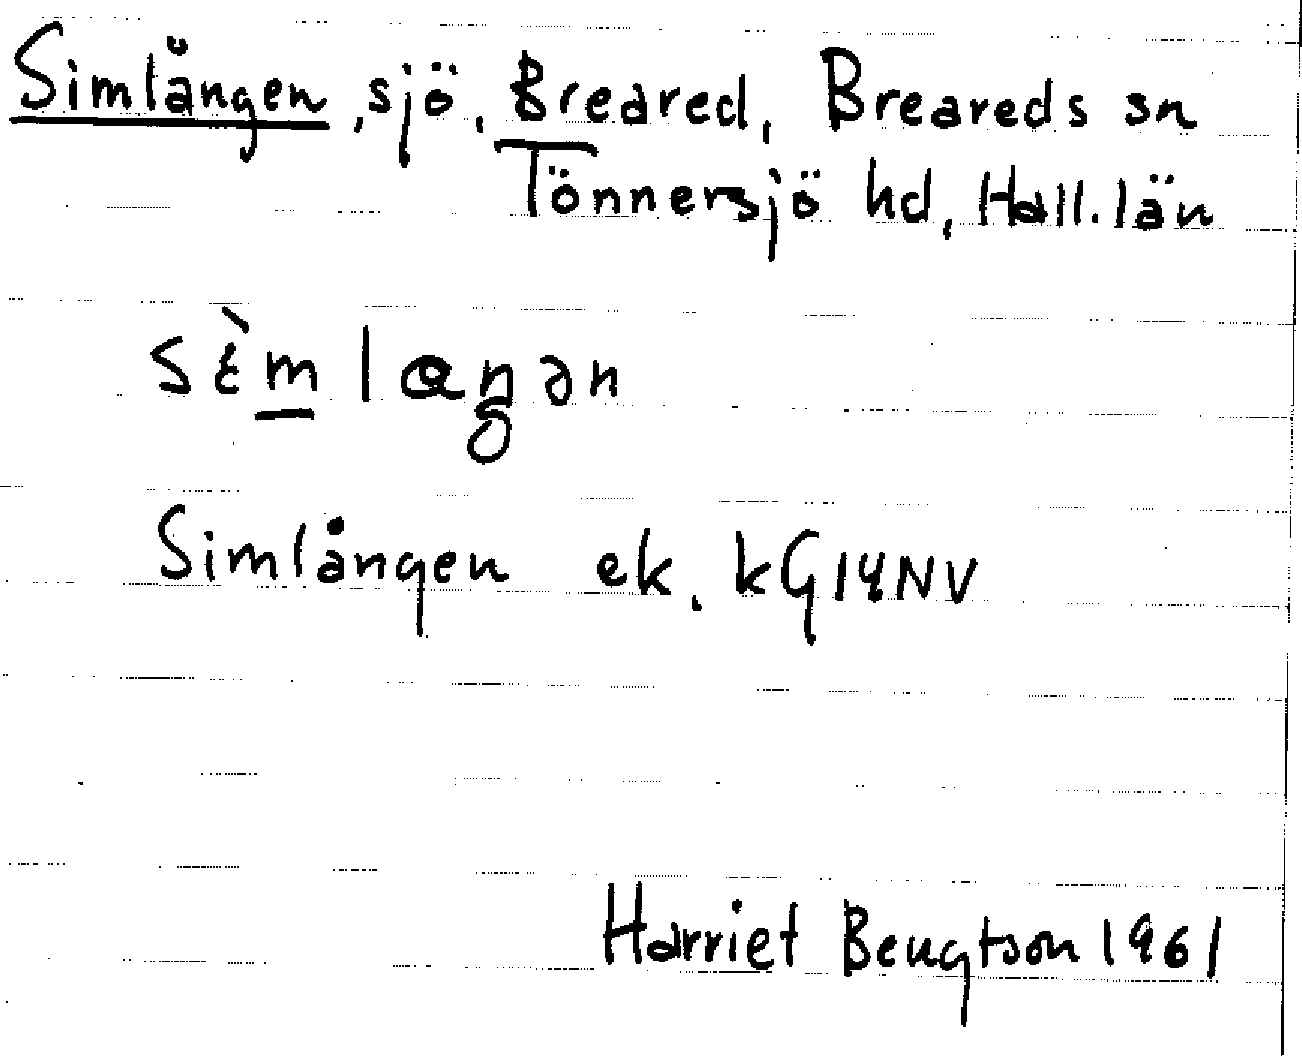 Simlången, sjö, Breared, Breareds sn
Tönnersjö hd, Hall. län
sɛ̀mlaŋən
Simlången ek. kG14NV
Harriet Bengtson 1961